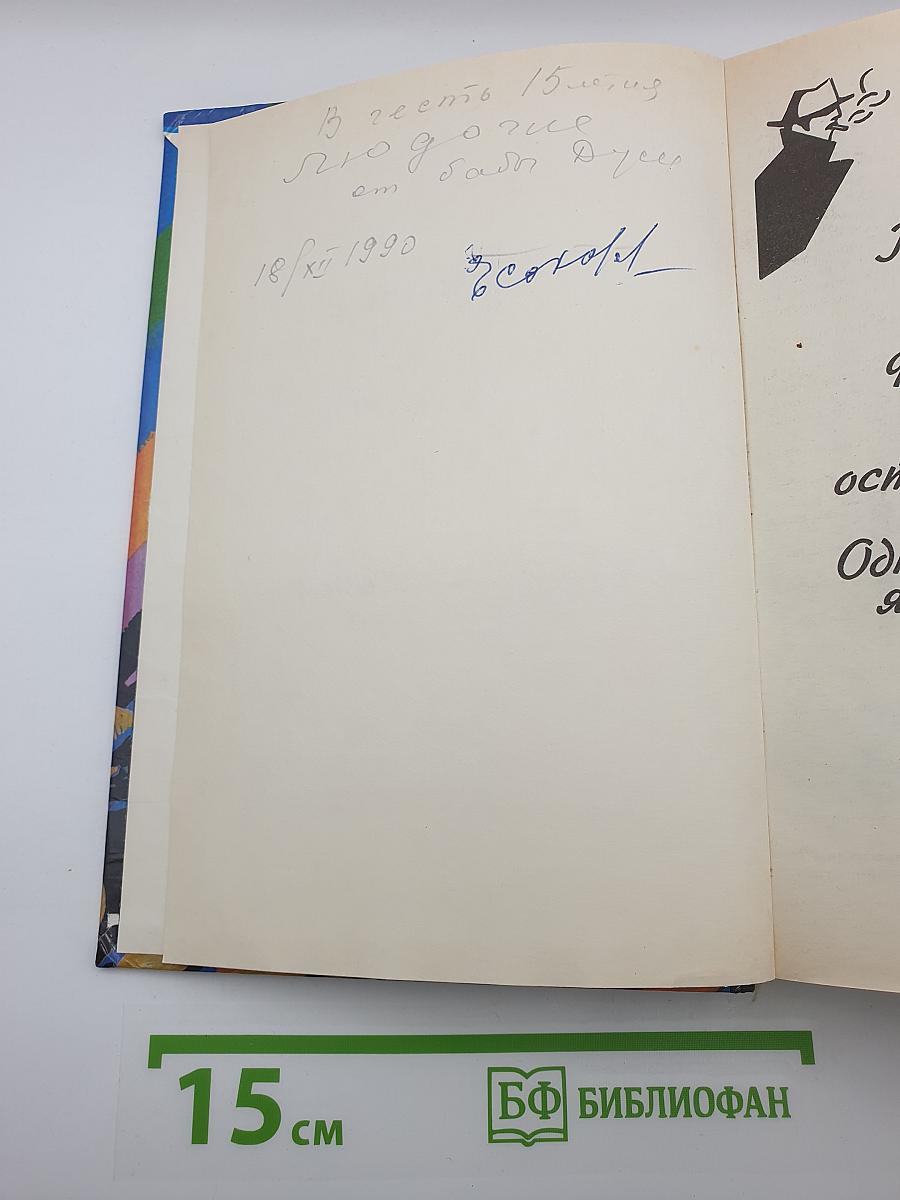 В честь 15летия
Людочке
от бабы Дуси
18/XII 1990
ост
Одн
я
15 см
БФ БИБЛИОФАН